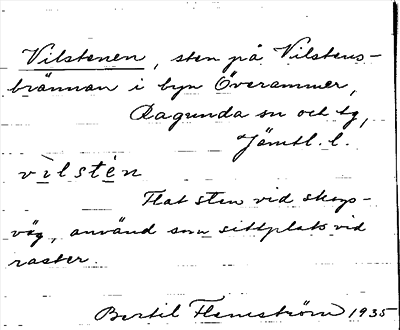 Vilstenen, sten på Vilstens-
brännan i byn Överammer,
Ragunda sn och tg,
Jämtl. l.
vilstén
Flat sten vid skogs-
väg, använd som sittplats vid
raster.
Bertil Flemström 1935